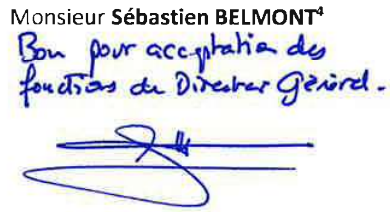 Monsieur Sébastien BELMONT⁴
Bon pour acceptation des
fonctions de Directeur Général.